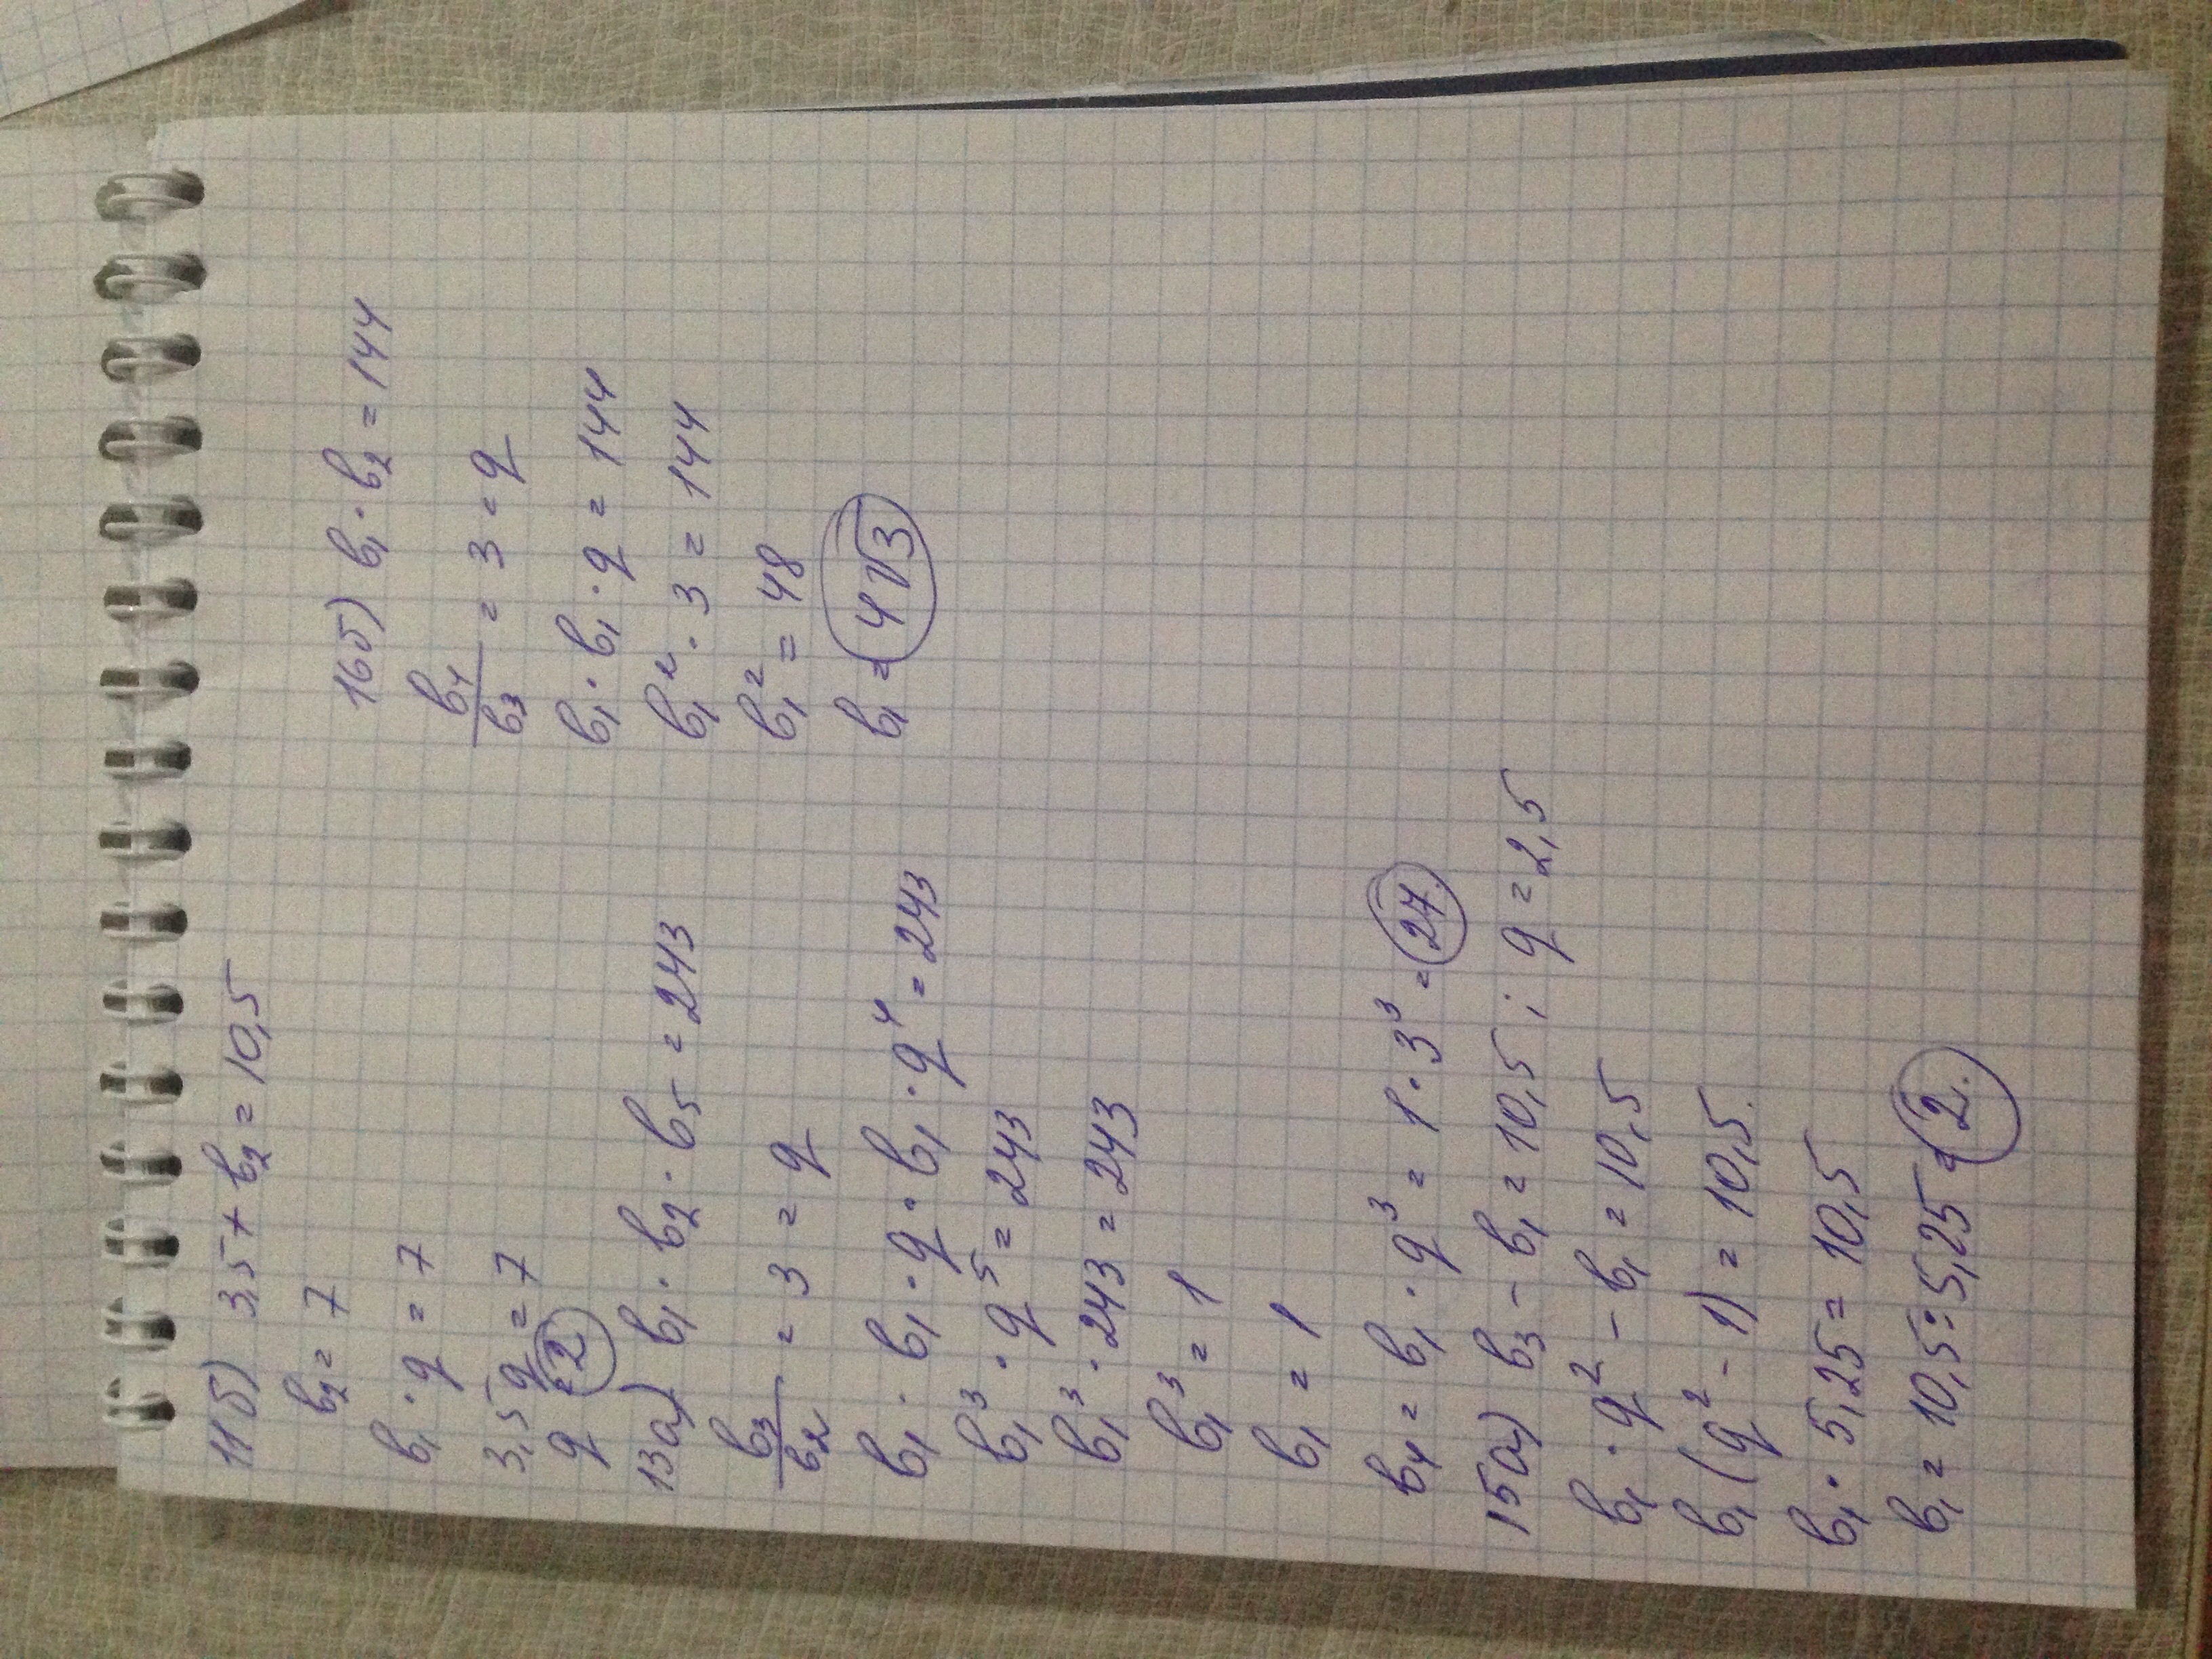 11б) 3,5 + b₂ = 10,5
b₂ = 7
b₁ · q = 7
3,5 q = 7
q = 2
13а) b₁ · b₂ · b₅ = 243
b₃/b₂ = 3 = q
b₁ · b₁ · q · b₁ · q⁴ = 243
b₁³ · q⁵ = 243
b₁³ · 243 = 243
b₁³ = 1
b₁ = 1
b₄ = b₁ · q³ = 1 · 3³ = 27.
15а) b₃ - b₁ = 10,5 ; q = 2,5
b₁ · q² - b₁ = 10,5
b₁ (q² - 1) = 10,5.
b₁ · 5,25 = 10,5
b₁ = 10,5 : 5,25 = 2.
16б) b₁ · b₂ = 144
b₄/b₃ = 3 = q
b₁ · b₁ · q = 144
b₁² · 3 = 144
b₁² = 48
b₁ = 4√3